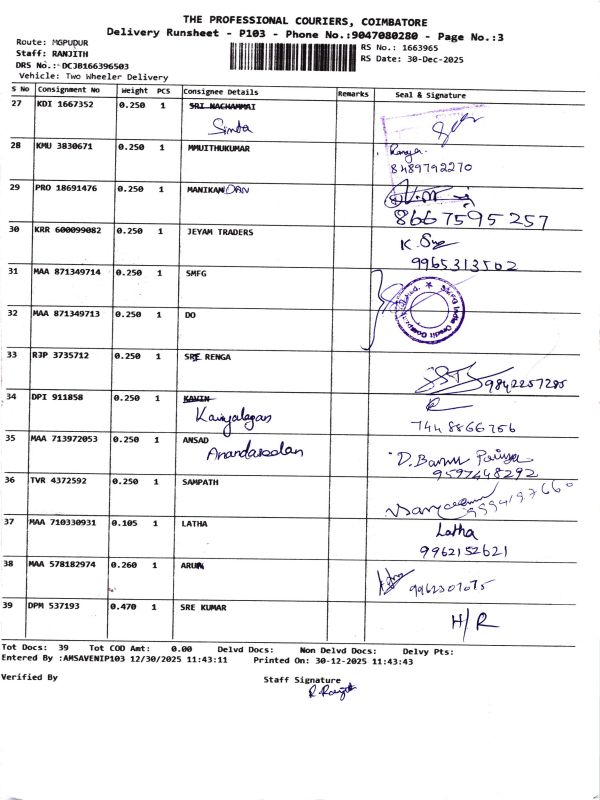 THE PROFESSIONAL COURIERS, COIMBATORE
Delivery Runsheet - P103 - Phone No.:9047080280 - Page No.:3
Route: MGPUDUR
RS No.: 1663965
Staff: RANJITH
RS Date: 30-Dec-2025
DRS No.:-DCJB166396503
Vehicle: Two Wheeler Delivery
S No Consignment No Weight PCS Consignee Details Remarks Seal & Signature
27 KDI 1667352 0.250 1 SRI NACHAMMAI
28 KMU 3830671 0.250 1 MMUITHUKUMAR
8489792270
29 PRO 18691476 0.250 1 MANIKANDAN
8667595257
30 KRR 600099082 0.250 1 JEYAM TRADERS
9965313502
31 MAA 871349714 0.250 1 SMFG
32 MAA 871349713 0.250 1 DO
33 RJP 3735712 0.250 1 SRE RENGA
9842257285
34 DPI 911858 0.250 1 KAVIN
7448866756
35 MAA 713972053 0.250 1 ANSAD
D. Banu Priya
9597448292
36 TVR 4372592 0.250 1 SAMPATH
37 MAA 710330931 0.105 1 LATHA
Latha
9962152621
38 MAA 578182974 0.260 1 ARUN
39 DPM 537193 0.470 1 SRE KUMAR
H/R
Tot Docs: 39 Tot COD Amt: 0.00 Delvd Docs: Non Delvd Docs: Delvy Pts:
Entered By :AMSAVENIP103 12/30/2025 11:43:11 Printed On: 30-12-2025 11:43:43
Verified By
Staff Signature